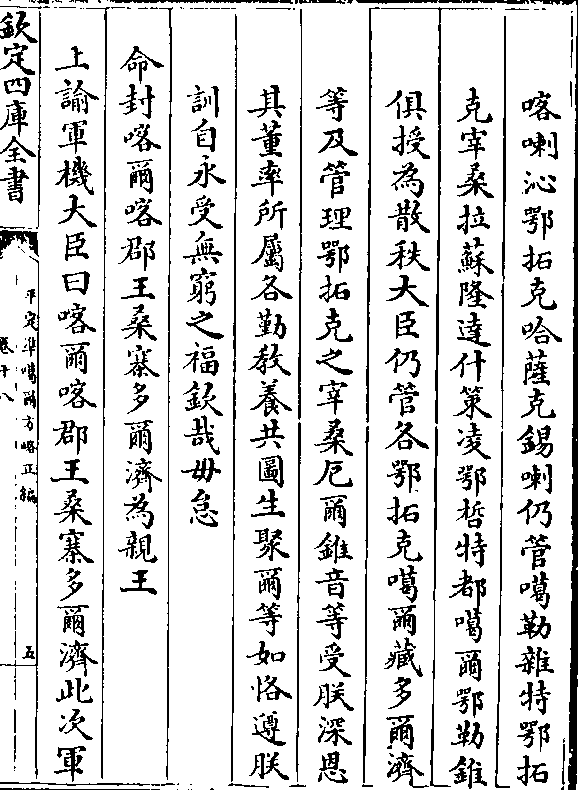 喀喇沁鄂拓克哈薩克錫喇仍管噶勒雜特鄂拓
克宰桑拉蘇隆達什策凌鄂哲特都噶爾鄂勒錐
俱授為散秩大臣仍管各鄂拓克噶爾藏多爾濟
等及管理鄂拓克之宰桑厄爾錐音等受朕深恩
其董率所屬各勤教養共圖生聚爾等如恪遵朕
訓自永受無窮之福欽哉毋怠
命封喀爾喀郡王桑寨多爾濟為親王
上諭軍機大臣曰喀爾喀郡王桑寨多爾濟此次軍
欽定四庫全書
平定準噶爾方略正編
卷十八
五